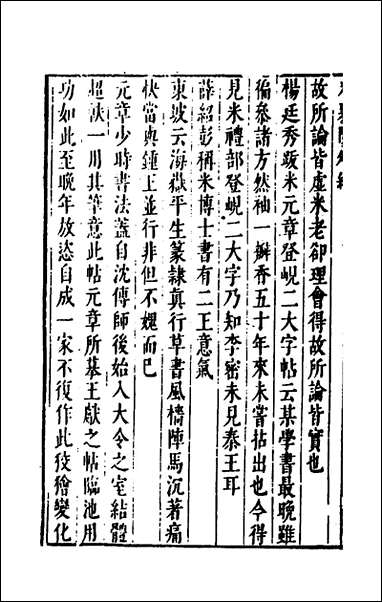 故所論皆虛米老卻理會得故所論皆實也
楊廷秀跋米元章登峴二大字帖云某學書最晚雖
徧參諸方然袖一瓣香五十年來未嘗拈出也今得
見米禮部登峴二大字乃知李密未見秦王耳
薛紹彭稱米博士書有二王意氣
東坡云海嶽平生篆隸眞行草書風檣陣馬沉著痛
快當與鍾王並行非但不媿而已
元章少時書法蓋自沈傳師後始入大令之室結體
超軼一用其筆意此帖元章所摹王獻之帖臨池用
功如此至晚年故恣自成一家不復作此狡獪變化